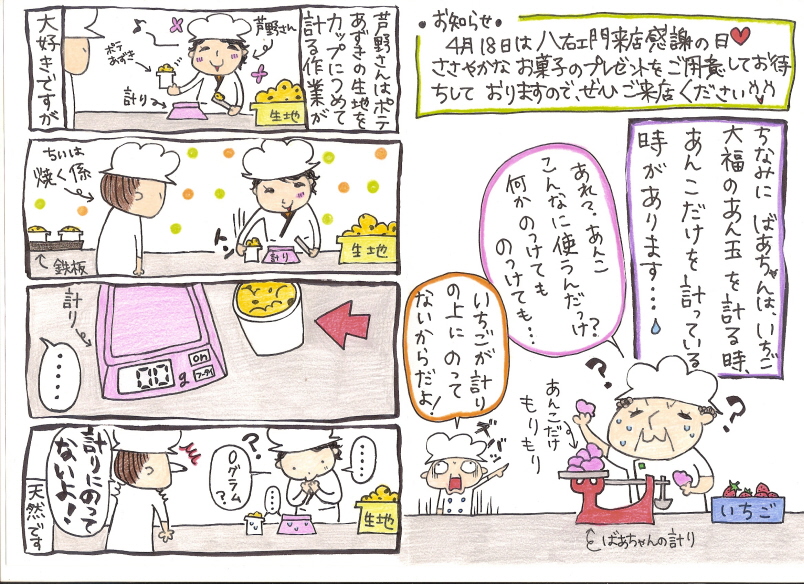 ・お知らせ・
4月18日は八右ェ門来店感謝の日♥
ささやかな お菓子のプレゼントをご用意してお待
ちして おりますので、ぜひ ご来店ください
芦野さんはポテ
あずきの生地を
カップにつめて
計る作業が
大好きですが
芦野さん
ポテ
あずき
計り
生地
ちいは
焼く係
鉄板
トン
計り
生地
計り
・・・・
0.0g
on
・・・・
?
0グラム
?
・・・
計りにのって
ないよ!
生地
天然です
ちなみに ばあちゃんは、いちご
大福のあん玉を計る時、
あんこだけを計っている
時があります…
あれ?あんこ
こんなに使うんだっけ?
何か のっけても
のっけても…
いちごが計り
の上に のって
ないからだよ!
あんこだけ
もりもり
?
?
いちご
ばあちゃんの計り